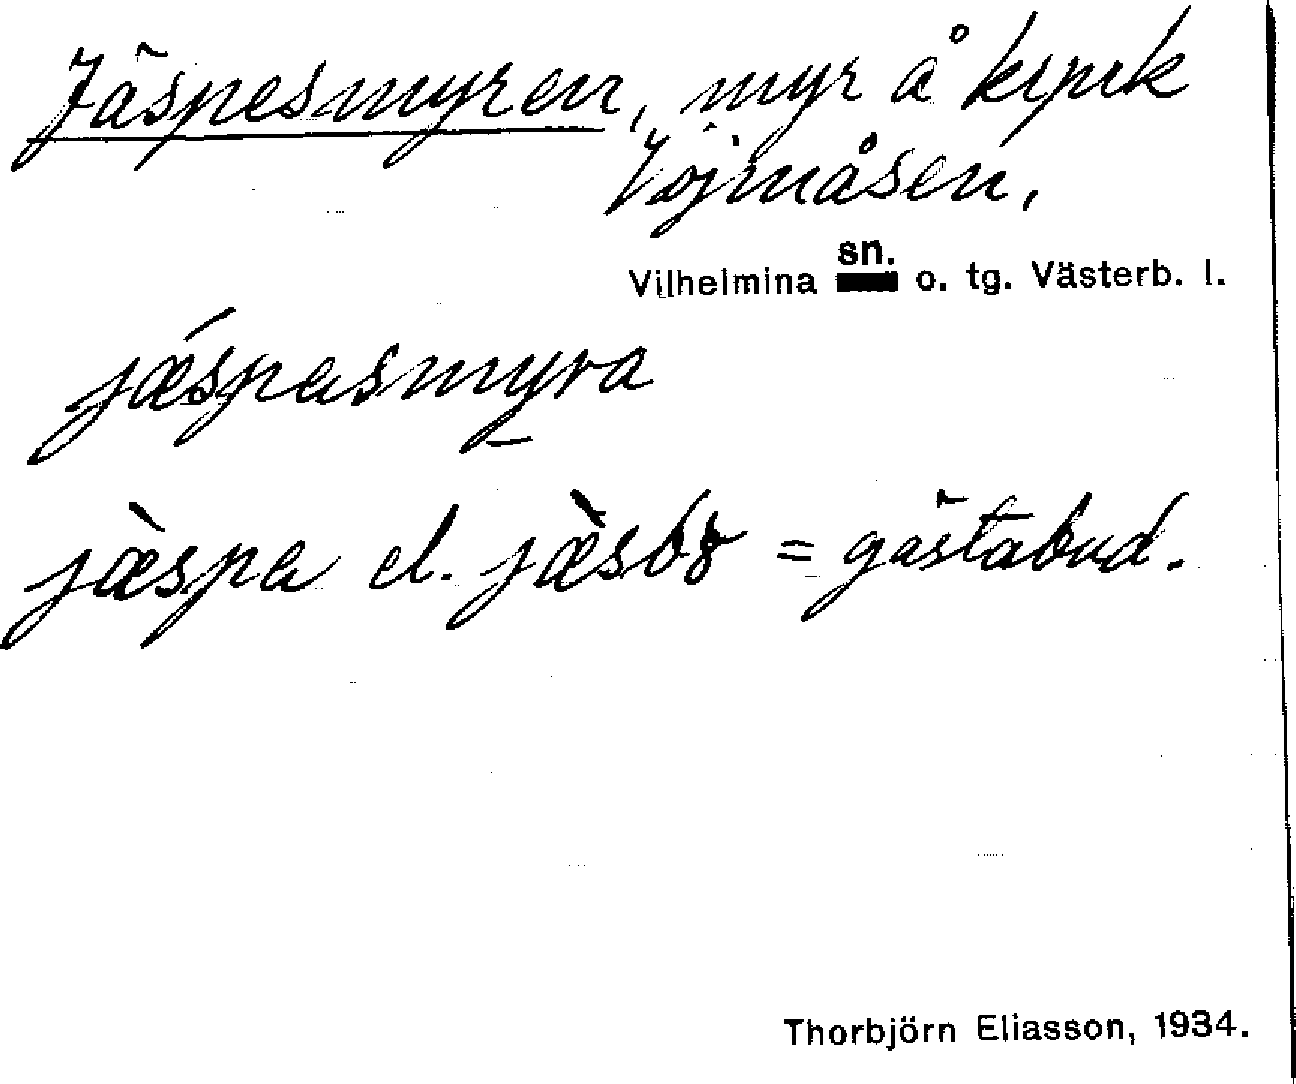 Jäspesmyren, myr å krpuk
Vojmåsen.
sn.
Vilhelmina o. tg. Västerb. l.
jǽspasmyra
jæ̀spa el. jæ̀sbɤ = gästabud.
Thorbjörn Eliasson, 1934.